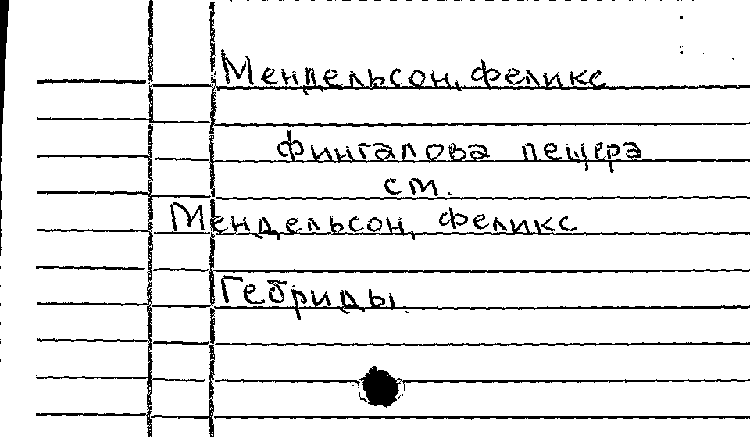 Мендельсон, Феликс
Фингалова пещера
см.
Мендельсон, Феликс
Гебриды.